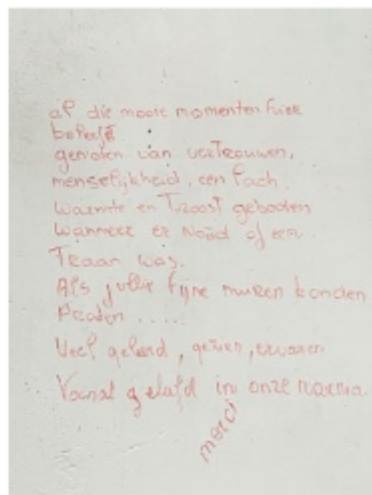 al die mooie momenten hier
beleefd
genoten van vertrouwen,
menselijkheid, een lach.
warmte en Troost geboden
wanneer er Nood of een
Traan was.
Als jullie fijne muren konden
Praten .....
Veel geleerd, gezien, ervaren
Vooral geloofd in onze
merci